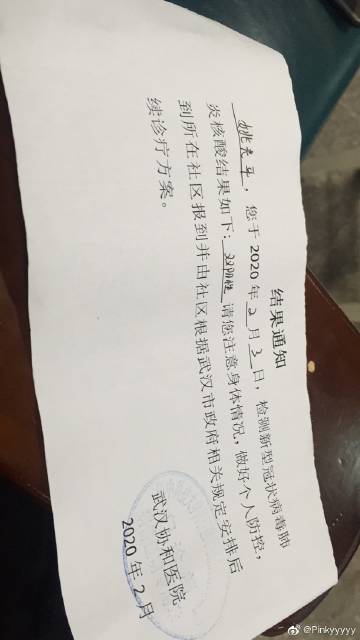 结果通知
姚志平，您于2020年2月3日，检测新型冠状病毒肺
炎核酸结果如下：双阳性 请您注意身体情况，做好个人防控，
到所在社区报到并由社区根据武汉市政府相关规定安排后
续诊疗方案。
武汉协和医院
2020年2月
@Pinkyyyyy